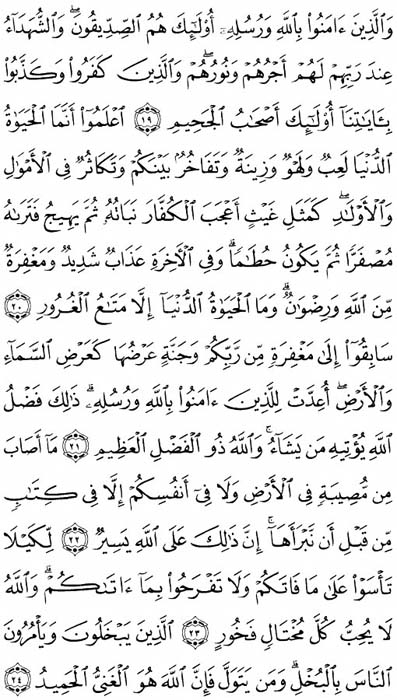 وَٱلَّذِينَ ءَامَنُوا۟ بِٱللَّهِ وَرُسُلِهِۦٓ أُو۟لَـٰٓئِكَ هُمُ ٱلصِّدِّيقُونَ ۖ وَٱلشُّهَدَآءُ
عِندَ رَبِّهِمْ لَهُمْ أَجْرُهُمْ وَنُورُهُمْ ۖ وَٱلَّذِينَ كَفَرُوا۟ وَكَذَّبُوا۟
بِـَٔايَـٰتِنَآ أُو۟لَـٰٓئِكَ أَصْحَـٰبُ ٱلْجَحِيمِ ١٩ ٱعْلَمُوٓا۟ أَنَّمَا ٱلْحَيَوٰةُ
ٱلدُّنْيَا لَعِبٌ وَلَهْوٌ وَزِينَةٌ وَتَفَاخُرٌۢ بَيْنَكُمْ وَتَكَاثُرٌ فِى ٱلْأَمْوَٰلِ
وَٱلْأَوْلَـٰدِ ۖ كَمَثَلِ غَيْثٍ أَعْجَبَ ٱلْكُفَّارَ نَبَاتُهُۥ ثُمَّ يَهِيجُ فَتَرَىٰهُ
مُصْفَرًّا ثُمَّ يَكُونُ حُطَـٰمًا ۖ وَفِى ٱلْـَٔاخِرَةِ عَذَابٌ شَدِيدٌ وَمَغْفِرَةٌ
مِّنَ ٱللَّهِ وَرِضْوَٰنٌ ۚ وَمَا ٱلْحَيَوٰةُ ٱلدُّنْيَآ إِلَّا مَتَـٰعُ ٱلْغُرُورِ ٢٠
سَابِقُوٓا۟ إِلَىٰ مَغْفِرَةٍ مِّن رَّبِّكُمْ وَجَنَّةٍ عَرْضُهَا كَعَرْضِ ٱلسَّمَآءِ
وَٱلْأَرْضِ أُعِدَّتْ لِلَّذِينَ ءَامَنُوا۟ بِٱللَّهِ وَرُسُلِهِۦ ۚ ذَٰلِكَ فَضْلُ
ٱللَّهِ يُؤْتِيهِ مَن يَشَآءُ ۚ وَٱللَّهُ ذُو ٱلْفَضْلِ ٱلْعَظِيمِ ٢١ مَآ أَصَابَ
مِن مُّصِيبَةٍ فِى ٱلْأَرْضِ وَلَا فِىٓ أَنفُسِكُمْ إِلَّا فِى كِتَـٰبٍ
مِّن قَبْلِ أَن نَّبْرَأَهَآ ۚ إِنَّ ذَٰلِكَ عَلَى ٱللَّهِ يَسِيرٌ ٢٢ لِّكَيْلَا
تَأْسَوْا۟ عَلَىٰ مَا فَاتَكُمْ وَلَا تَفْرَحُوا۟ بِمَآ ءَاتَىٰكُمْ ۗ وَٱللَّهُ
لَا يُحِبُّ كُلَّ مُخْتَالٍ فَخُورٍ ٢٣ ٱلَّذِينَ يَبْخَلُونَ وَيَأْمُرُونَ
ٱلنَّاسَ بِٱلْبُخْلِ ۗ وَمَن يَتَوَلَّ فَإِنَّ ٱللَّهَ هُوَ ٱلْغَنِىُّ ٱلْحَمِيدُ ٢٤